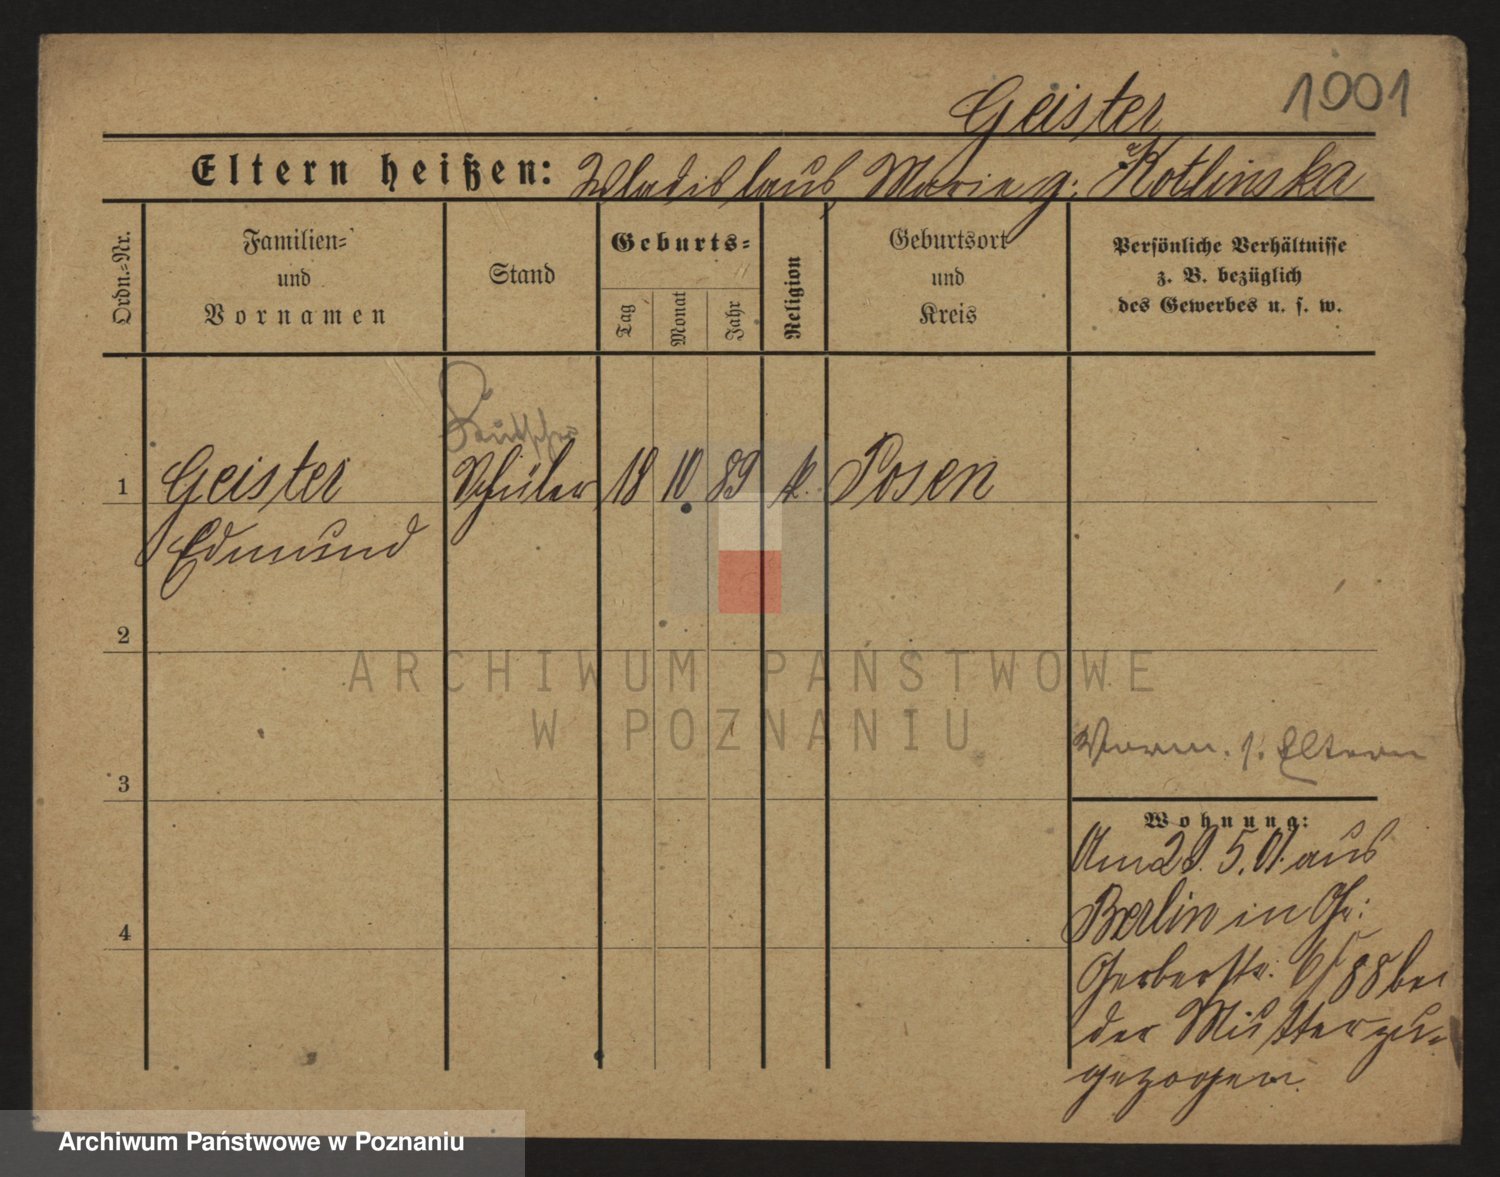 Geister
1901
Eltern heißen: Wladislaus, Marie g. Kotlinska
Ordn.-Nr.
Familien-
und
Vornamen
Stand
Geburts-
Tag
Monat
Jahr
Religion
Geburtsort
und
Kreis
Persönliche Verhältnisse
z. B. bezüglich
des Gewerbes u. s. w.
Deutscher
1 Geister Schüler 18 10 89 k. Posen
Edmund
2
3
4
Verm. s. Eltern
Wohnung:
Am 29.5.01. aus
Berlin in Gr:
Gerberstr. 6/88 bei
der Mutter zu-
gezogen.
ARCHIWUM PAŃSTWOWE
W POZNANIU
Archiwum Państwowe w Poznaniu